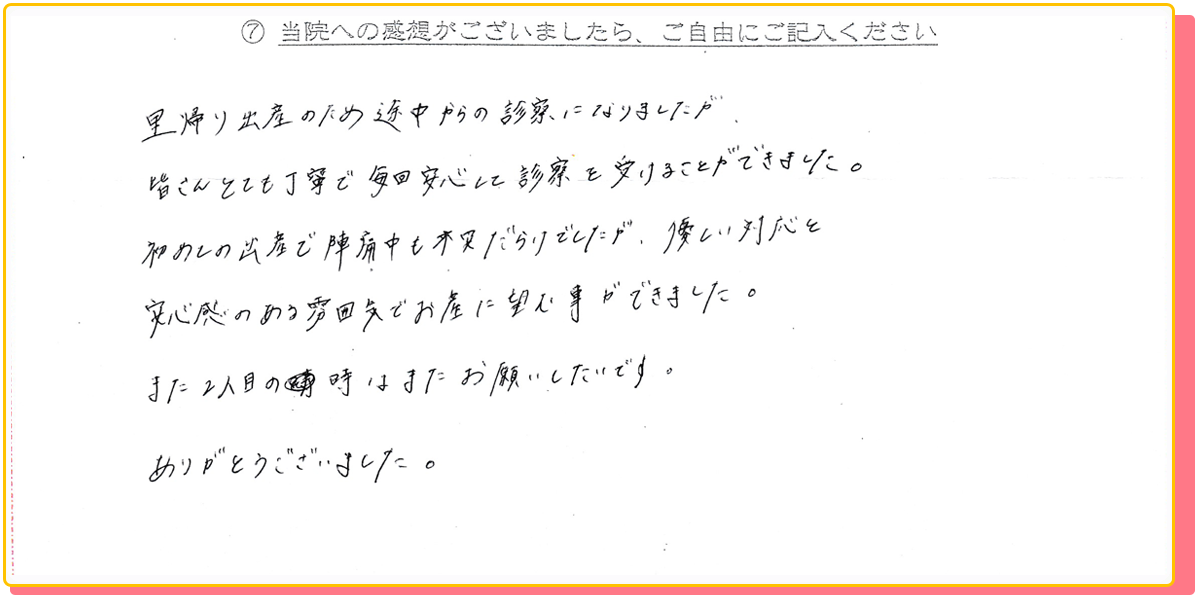 ⑦ 当院への感想がございましたら、ご自由にご記入ください
里帰り出産のため途中からの診察になりましたが、
皆さんとても丁寧で毎回安心して診察を受けることができました。
初めての出産で陣痛中も不安だらけでしたが、優しい対応と
安心感のある雰囲気でお産に望む事ができました。
また2人目の時はまたお願いしたいです。
ありがとうございました。